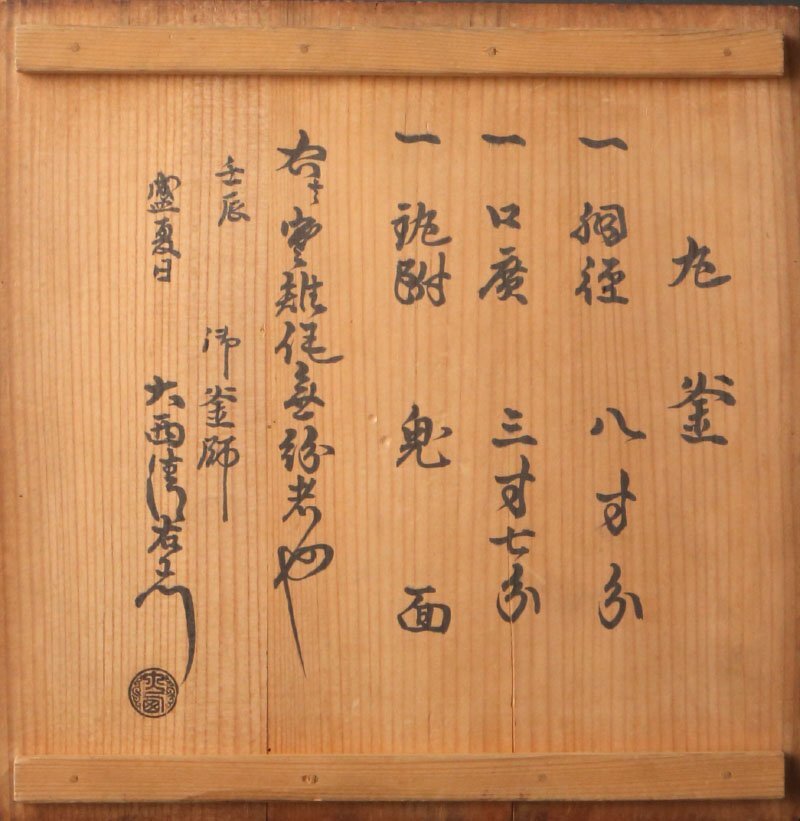 丸釜
一 胴径 八寸分
一 口廣 三寸七分
一 鐶附 鬼面
右者寒雉作無紛者也
壬辰 御釜師
盛夏日 大西清右衛門